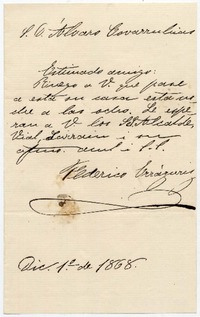 S. D. Álvaro Covarrubias
Estimado amigo:
Ruego a V. que pase
a esta su casa esta no-
che a las ocho. Le espe-
ran a V. los SS. Alcalde,
Vial, Larrain i su
afmo. amil i S. S.
Federico Errázuriz
Dic. 1º de 1868.